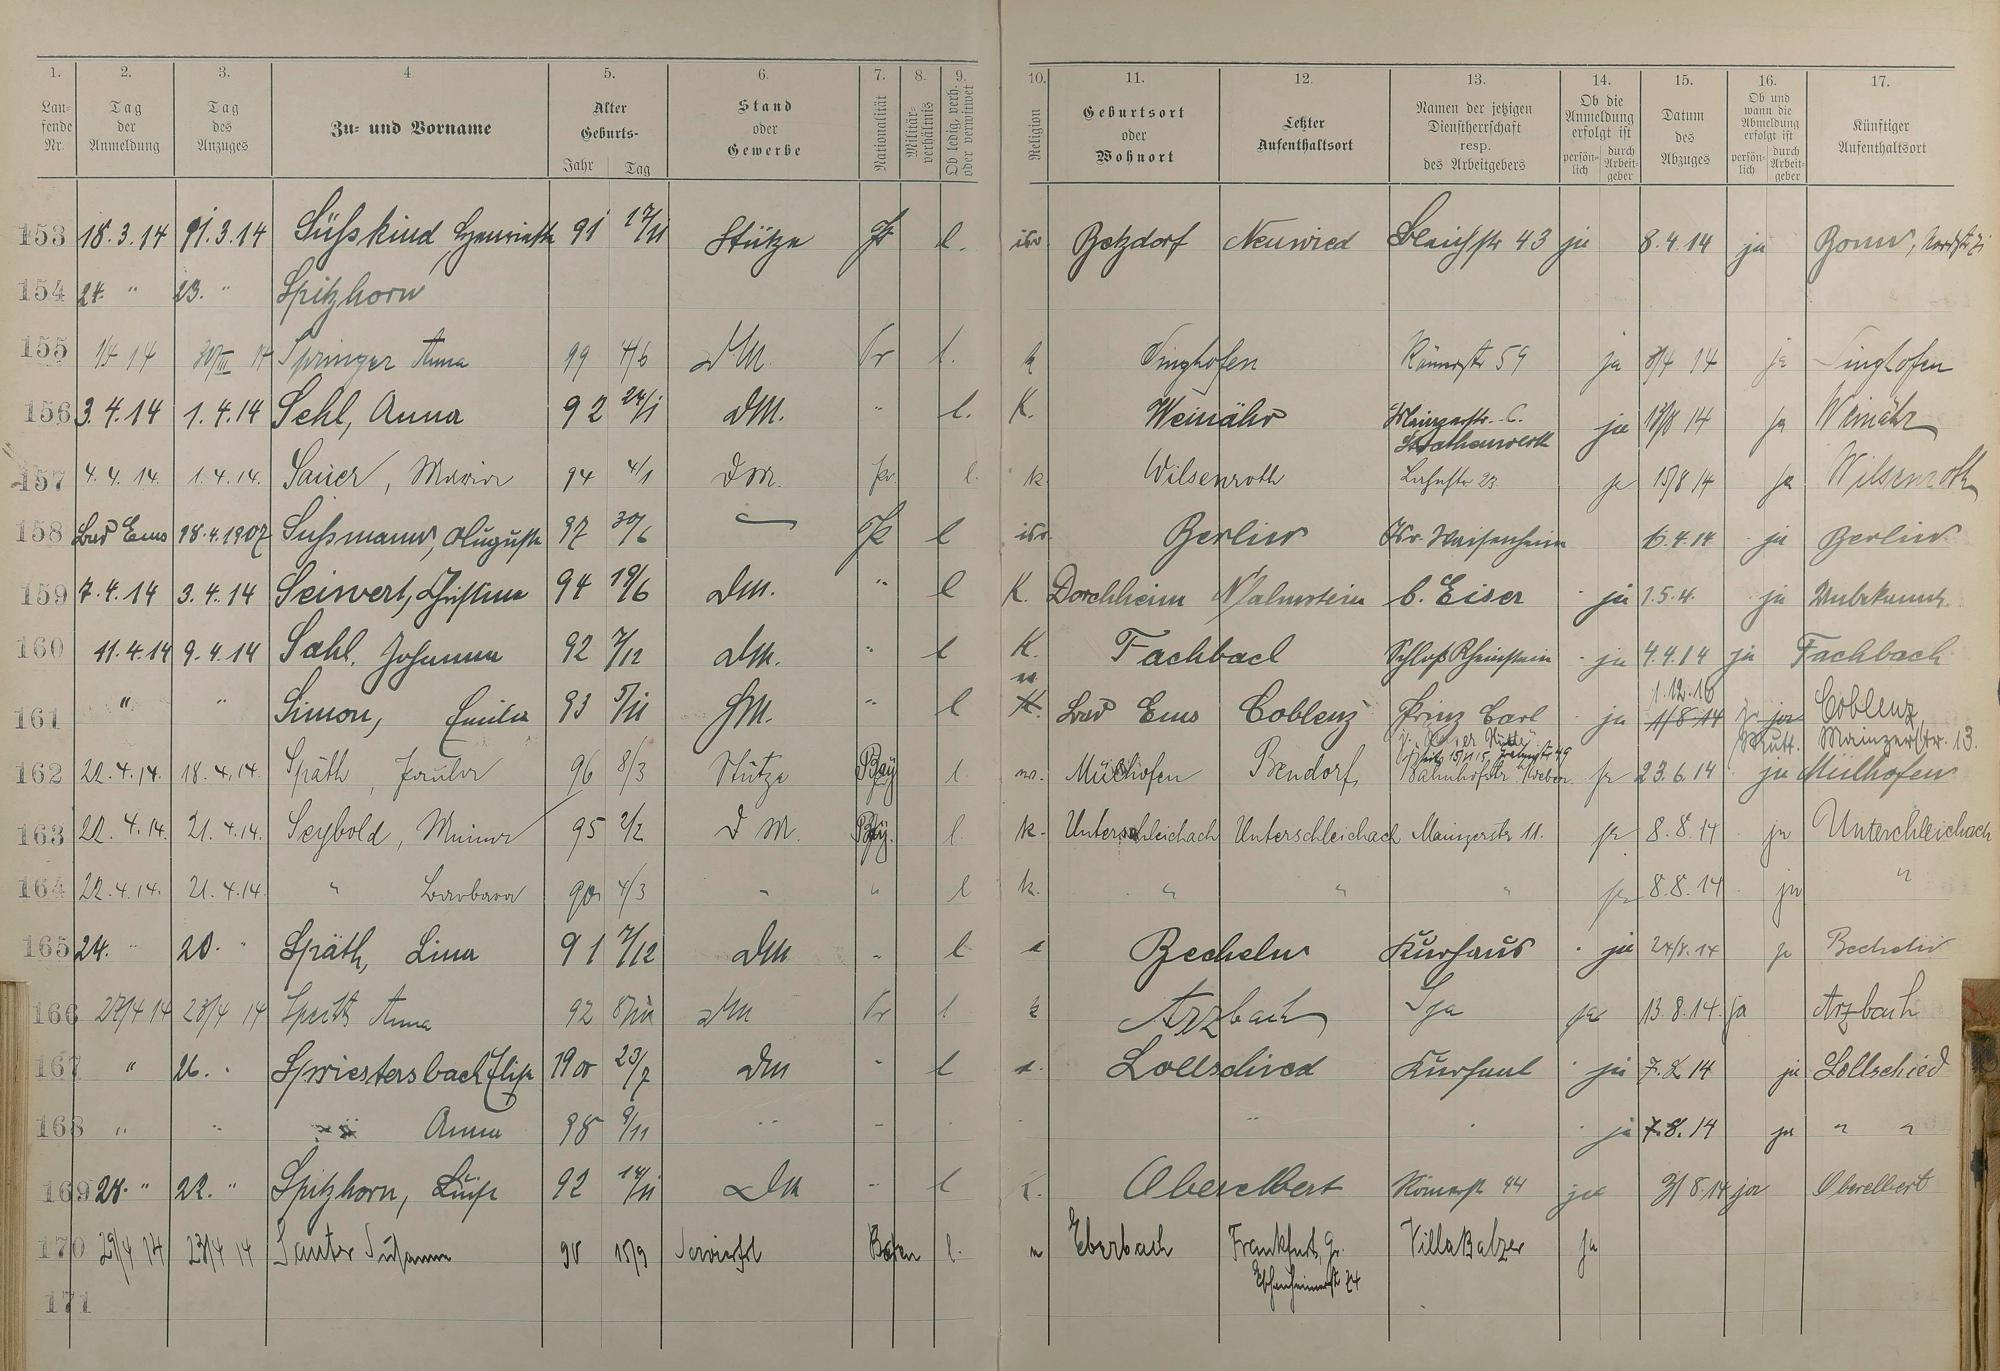 1. 2. 3. 4 5. 6. 7. 8. 9. 10. 11. 12. 13. 14. 15. 16. 17.
Lau-fende Nr. Tag der Anmeldung Tag des Anzuges Zu- und Vorname Alter Geburts- Jahr Tag Stand oder Gewerbe Nationalität Militär-verhältnis Ob ledig, verh. oder verwitwet Religion Geburtsort oder Wohnort Letzter Aufenthaltsort Namen der jetzigen Dienstherrschaft resp. des Arbeitgebers Ob die Anmeldung erfolgt ist persön-lich durch Arbeit-geber Datum des Abzuges Ob und wann die Abmeldung erfolgt ist persön-lich durch Arbeit-geber Künftiger Aufenthaltsort
153 18.3.14 Süßkind, Henriette 91 17/11 Stütze l. isr Betzdorf Neuwied Bleichstr 43 ja 8.4.14 ja Bonn,
154 24. " 23. " Spitzhorn
155 1/4 14 Springer Anna 99 4/6 DM. Pr l. k Singhofen Römerstr 59 ja 8/4 14 ja Singhofen
156 3.4.14 1.4.14 Sehl, Anna 92 24/1 DM. " l. K. Weinähr Mainzerstr. C. ja 14 ja Weinähr
157 4.4.14. 1.4.14. Sauer, Maria 94 4/1 DM. Pr. l. k. Wilsenroth 23 ja 15/8 14 ja Wilsenroth
158 Bad Ems 18.4.1907 Sußmann, Auguste 97 30/6 — Pr l isr. Berlin Isr. Waisenheim 6.4.14 ja Berlin
159 7.4.14 3.4.14 Seiwert, Christine 94 19/6 DM. " l K. Dorchheim N/Lahnstein b. Eiser ja 1.5.14. ja Unbekannt.
160 11.4.14 9.4.14 Sahl, Johanna 92 7/12 DM. " l K. Fachbach Schloß Rheinstein ja 4.4.14 ja Fachbach
161 " " Simon, Emilie 93 5/11 " l K. Bad Ems Coblenz Prinz Carl ja 1.12.16 11/8 14 ja Coblenz, Mainzerstr. 13.
162 22.4.14. 18.4.14. Späth, Paula 96 8/3 Stütze Bay l. Mülhofen Bendorf Bahnhofstr. Weber ja 23.6.14 ja Mülhofen
163 22.4.14. 21.4.14. Seybold, Minna 95 2/2 DM. Bay. l. k. Unterschleichach Unterschleichach Mainzerstr 11. ja 8.8.14 ja Unterschleichach
164 22.4.14. 21.4.14. " Barbara 90 4/3 " " l k. " " " ja 8.8.14 ja "
165 24. " 20. " Späth, Lina 91 7/12 DM " l Becheln Kurhaus ja 24/8.14 ja Becheln
166 27/4 14 23/4 14 Anna 92 DM Pr l k Arzbach ja 13.8.14. ja Arzbach
167 " 26. " Spriestersbach Elise 1900 23/7 DM " l Lollschied Kurhaus ja 7.8.14 ja Lollschied
168 " " " Anna 98 9/11 " " " ja 7.8.14 ja " "
169 24. " 22. " Spitzhorn, Luise 92 14/11 DM " l K. Oberelbert Römerstr 44 ja 3/8.14 ja Oberelbert
170 29/4 14 23/4 14 Sauter Susanna 90 15/9 Servierfrl Baden l. Eberbach Frankfurt, Villa Balzer ja
171